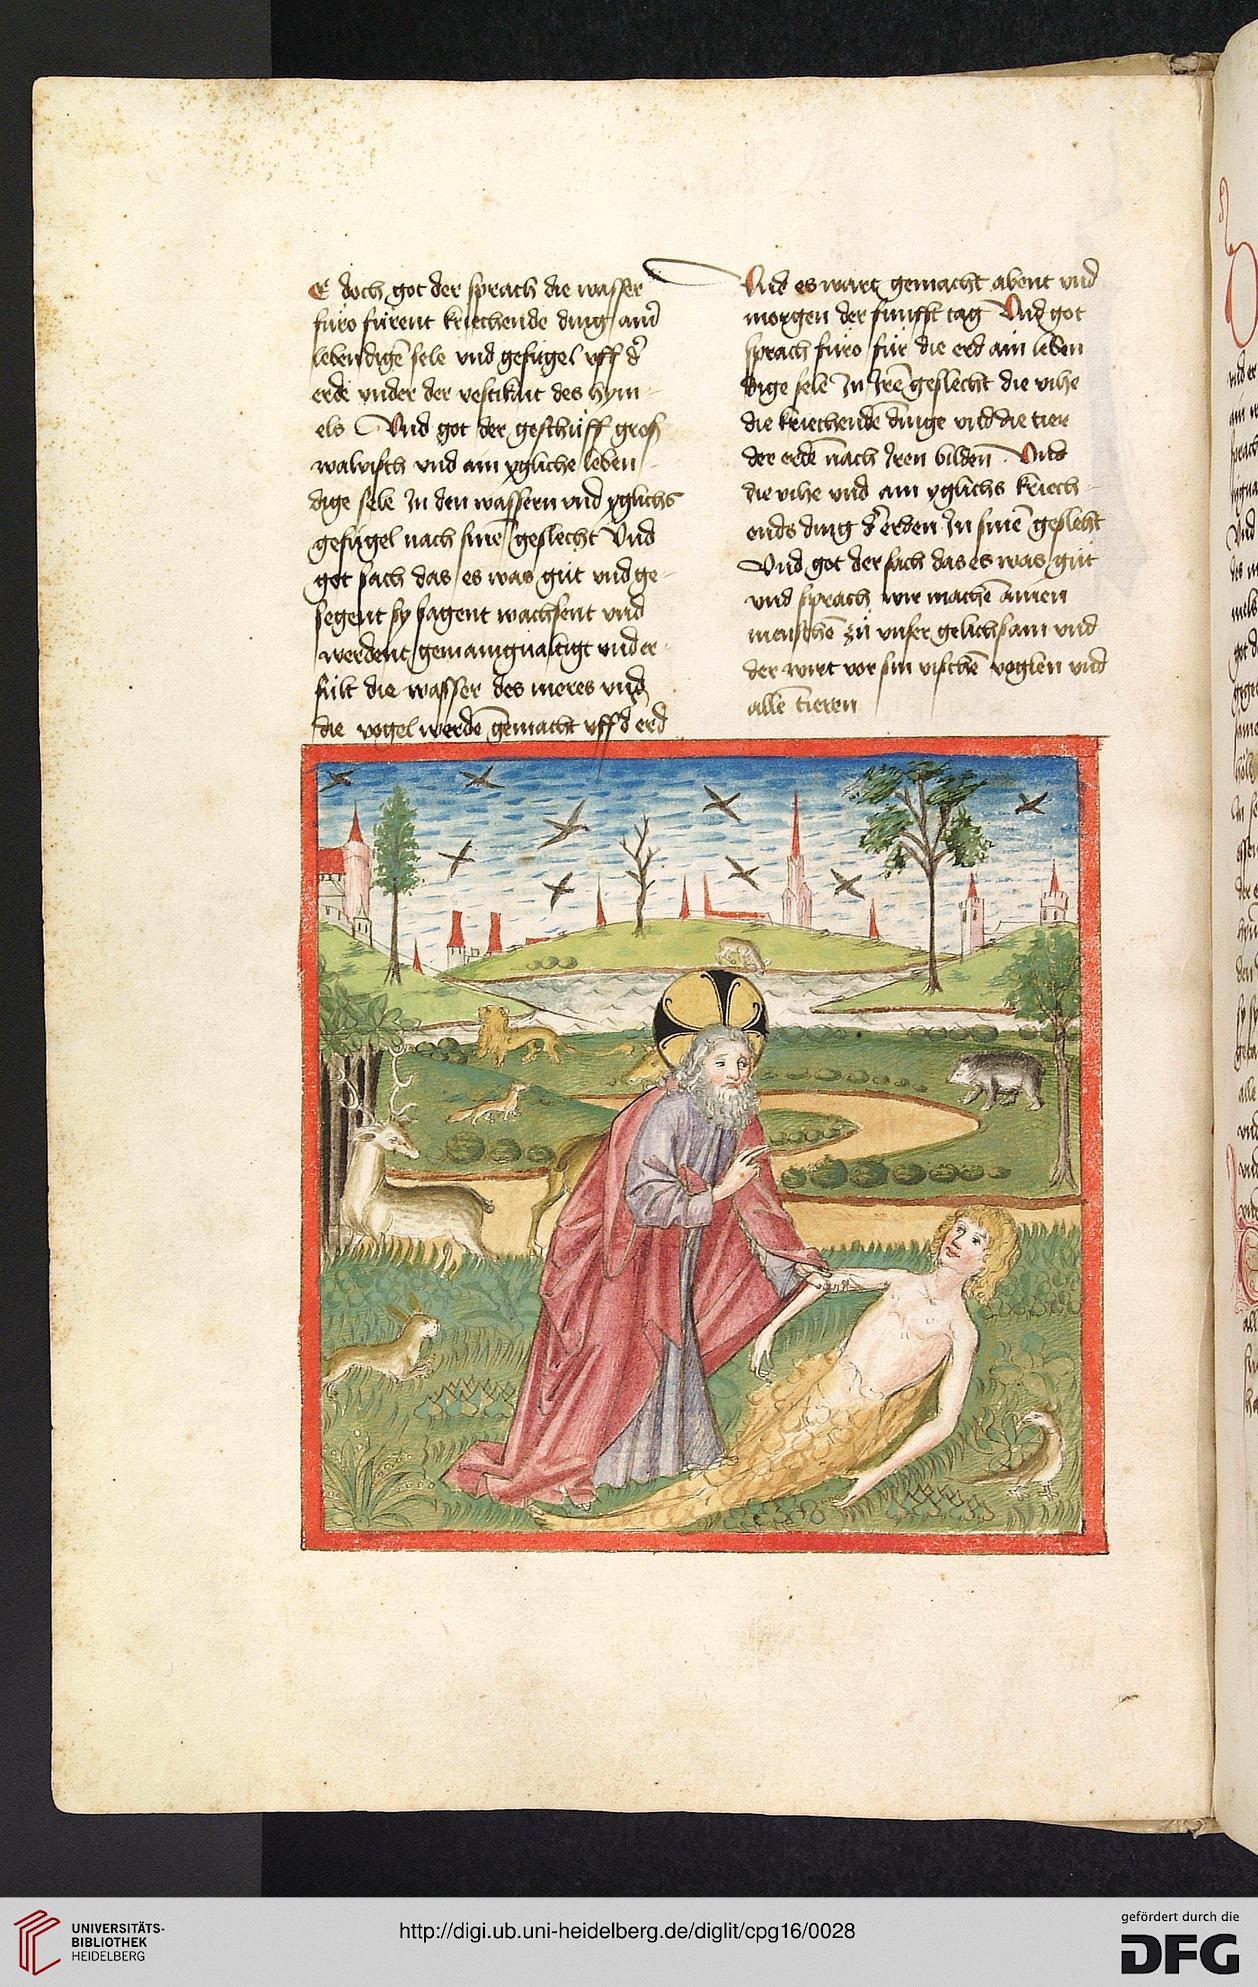 E doch got der sprach die wasser
furo fürent kriechende ding ainr
lebendigē sele vnd gefügel vff dʼ
erde vnder der vestikait des hym-
els Vnd got der geschüff groß
walvisch vnd ain ygliche leben-
dige sele In den wassern vnd yglichs
gefügel nach sinē geslecht Vnd
got sach das es was güt vnd ge-
segent sy sagent wachsent vnd
werdent gemanigualtigt vnd er-
fült die wasser des meres vnd
die vogel werdē gemacht vff d erd
Vnd es wart gemacht abent vnd
morgen der funfft tag Vnd got
sprach furo für die erd ain leben
dige sele In Irē geslecht die vihe
die kriechende dinge vnd die tier
der erdē nach Iren bilden Vnd
die vihe vnd ain yglichs kriech-
ends ding dʼ erden In sinē geslecht
Vnd got der sach das es was güt
vnd sprach wir machē ainen
menschē zü vnser gelichsam vnd
der wirt vor sin vischē voglen vnd
allē tieren
UNIVERSITÄTS-
BIBLIOTHEK
HEIDELBERG
http://digi.ub.uni-heidelberg.de/diglit/cpg16/0028
gefördert durch die
DFG